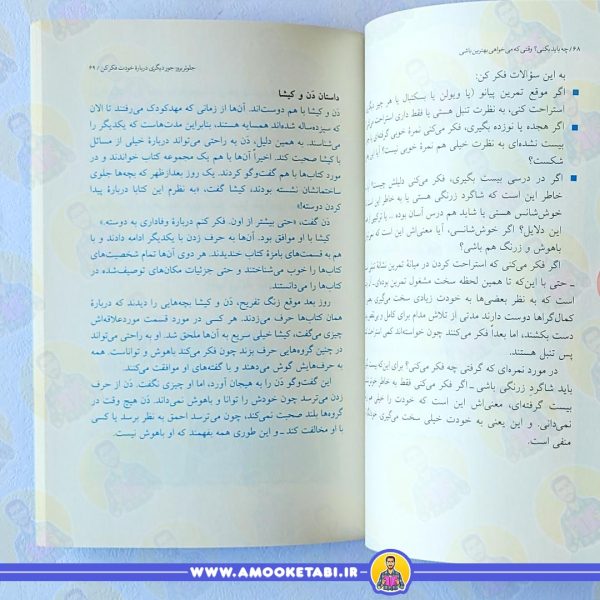 ۶۸/ چه باید بکنی؟ وقتی که می‌خواهی بهترین باشی
به این سؤالات فکر کن:
اگر موقع تمرین پیانو (یا ویولن یا بسکتبال یا هر چیز دیگر
استراحت کنی، به نظرت تنبل هستی یا فقط داری استراحت
اگر هجده یا نوزده بگیری، فکر می‌کنی نمرهٔ خوبی گرفته‌ای
بیست نشده‌ای به نظرت خیلی هم نمرهٔ خوبی نیست؟ آیا این
شکست؟
اگر در درسی بیست بگیری، فکر می‌کنی دلیلش چیست؟
خاطر این است که شاگرد زرنگی هستی یا به این خاطر
خوش‌شانس هستی یا شاید هم درس آسان بوده... یا ترکیبی
این دلایل؟ اگر خوش‌شانسی، آیا معنی‌اش این است که
باهوش و زرنگ هم باشی؟
اگر فکر می‌کنی که استراحت کردن در میانهٔ تمرین نشانهٔ
ـ حتی با این‌که تا همین لحظه سخت مشغول تمرین بوده‌ای ـ
است که به نظر بعضی‌ها به خودت زیادی سخت می‌گیری
کمال‌گراها دوست دارند مدتی از تلاش مدام برای کامل و بی‌نقص
دست بکشند، اما بعداً فکر می‌کنند چون خواسته‌اند کمی استراحت
پس تنبل هستند.
در مورد نمره‌ای که گرفتی چه فکر می‌کنی؟ برای این‌که بیست
باید شاگرد زرنگی باشی ـ اگر فکر می‌کنی فقط به خاطر
بیست گرفته‌ای، معنی‌اش این است که خودت را خیلی
نمی‌دانی. و این یعنی به خودت خیلی سخت می‌گیری
منفی است.
جلوتر برو: جور دیگری دربارهٔ خودت فکر کن / ۶۹
داستان دَن و کیشا
دَن و کیشا با هم دوست‌اند. آن‌ها از زمانی که مهدکودک می‌رفتند تا الان
که سیزده‌ساله شده‌اند همسایه هستند، بنابراین مدت‌هاست که یکدیگر را
می‌شناسند. به همین دلیل، دَن به راحتی می‌تواند دربارهٔ خیلی از مسائل
با کیشا صحبت کند. اخیراً آن‌ها با هم یک مجموعه کتاب خواندند و در
مورد کتاب‌ها با هم گفت‌وگو کردند. یک روز بعدازظهر که بچه‌ها جلوی
ساختمانشان نشسته بودند، کیشا گفت، «به نظرم این کتابا دربارهٔ پیدا
کردن دوسته!»
دَن گفت، «حتی بیشتر از اون. فکر کنم دربارهٔ وفاداری به دوسته.»
کیشا با او موافق بود. آن‌ها به حرف زدن با یکدیگر ادامه دادند و با
هم به قسمت‌های بامزهٔ کتاب خندیدند. هر دوی آن‌ها تمام شخصیت‌های
کتاب‌ها را خوب می‌شناختند و حتی جزئیات مکان‌های توصیف‌شده در
کتاب‌ها را می‌دانستند.
روز بعد موقع زنگ تفریح، دَن و کیشا بچه‌هایی را دیدند که دربارهٔ
همان کتاب‌ها حرف می‌زدند. هر کسی در مورد قسمت موردعلاقه‌اش
چیزی می‌گفت، کیشا خیلی سریع به آن‌ها ملحق شد. او به راحتی می‌تواند
در چنین گروه‌هایی حرف بزند چون فکر می‌کند باهوش و تواناست. همه
به حرف‌هایش گوش می‌دهند و با گفته‌های او موافقت می‌کنند.
این گفت‌وگو دَن را به هیجان آورد، اما او چیزی نگفت. دَن از حرف
زدن می‌ترسد چون خودش را توانا و باهوش نمی‌داند. دَن هیچ وقت در
گروه‌ها بلند صحبت نمی‌کند، چون می‌ترسد احمق به نظر برسد یا کسی
با او مخالفت کند ـ و این طوری همه بفهمند که او باهوش نیست.
WWW.AMOOKETABI.IR